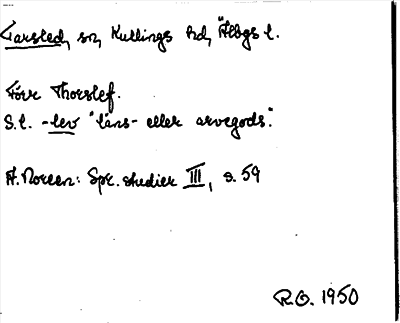 Tarsled, sn, Kullings hd, Älvbgs l.
Förr Thorslef.
S.l. -lev "läns- eller arvegods".
A. Noreen: Spr. studier III, s. 59
R.O. 1950